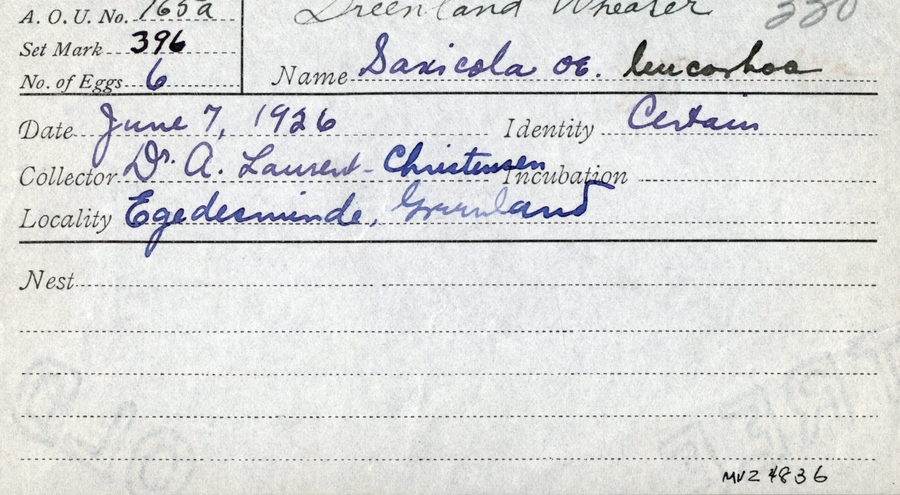 A. O. U. No. 765a
Greenland Wheater 330
Set Mark 396
No. of Eggs 6
Name Saxicola oe. leucorhoa
Date June 7, 1926 Identity Certain
Collector Dr. A. Laurent-Christensen Incubation
Locality Egedesminde, Greenland
Nest
MVZ 4836